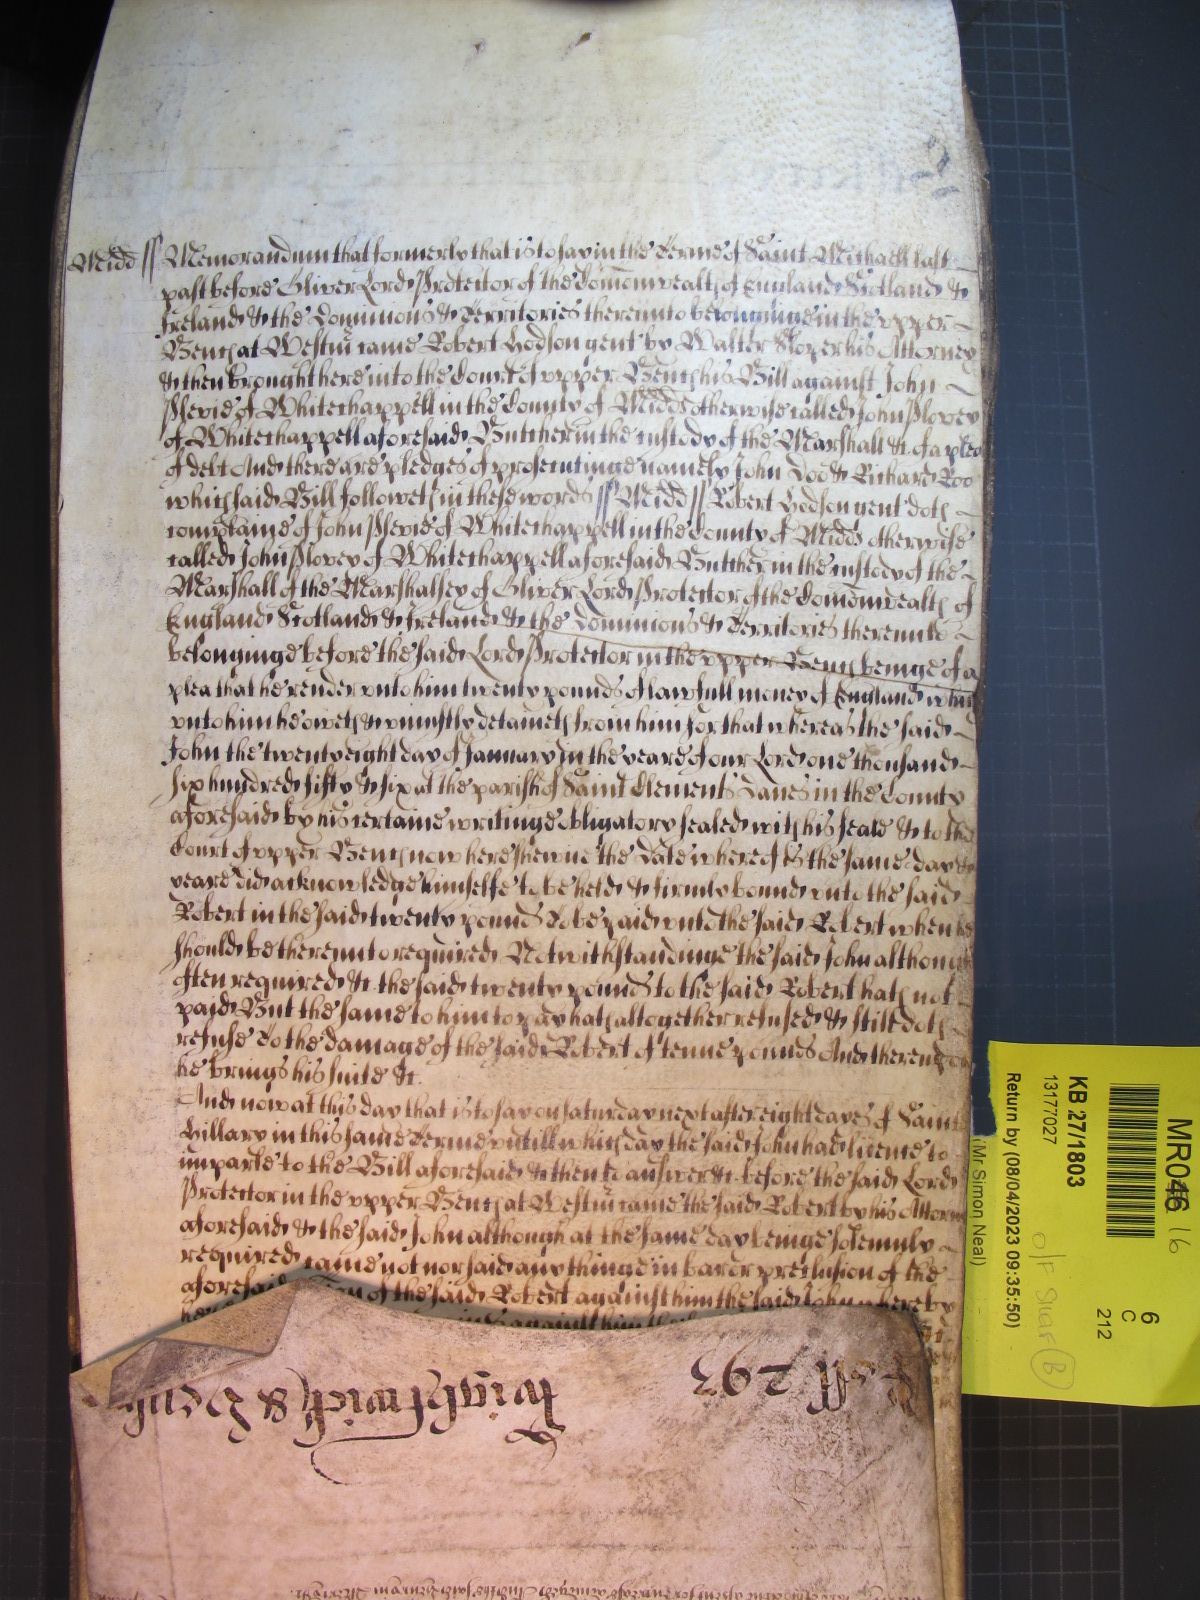 Midd // Memorandum that formerly that is to say in the Terme of Saint Michaell last
past before Oliver Lord Protector of the Comonwealth of England Scotland &
Ireland & the Dominions & Territories thereunto belonginge in the upper
Bench at Westm came Robert Hodson gent by Walter Sloper his Attorney
& then brought here into the Court of upper Bench his Bill against John
Plevie of Whitechappell in the County of Midds otherwise called John Plovey
of Whitechappell aforesaid Butcher in the custody of the Marshall &c of a plea
of debt And there are pledges of prosecutinge namely John Doo & Richard Roo
which said Bill followeth in these words // Midd // Robert Hodson gent doth
complaine of John Plevie of Whitechappell in the County of Midds otherwise
called John Plovey of Whitechappell aforesaid Butcher in the custody of the
Marshall of the Marshalsey of Oliver Lord Protector of the Comonwealth of
England Scotland & Ireland & the Dominions & Territories thereunto
belonginge before the said Lord Protector in the upper Bench beinge of a
plea that he render unto him twenty pounds of lawfull money of England which
unto him he oweth & uniustly detaineth from him for that whereas the said
John the twenty eight day of January in the yeare of our Lord one thousand
six hundred fifty & six at the parish of Saint Clements Danes in the County
aforesaid by his certaine writinge obligatory sealed with his seale & to the
Court of upper Bench now here shewne the date whereof is the same day &
yeare did acknowledge himselfe to be held & firmly bound unto the said
Robert in the said twenty pounds To be paid unto the said Robert when he
should be thereunto required Notwithstandinge the said John although
often required &c the said twenty pounds to the said Robert hath not
paid But the same to him to pay hath altogether refused & still doth
refuse To the damage of the said Robert of tenne pounds And thereupon
he brings his suite &c.
And now at this day that is to say on saturday next after eight dayes of Saint
Hillary in this same Terme untill which day the said John had licence to
imparle to the Bill aforesaid & then to answer &c before the said Lord
Protector in the upper Bench at Westm came the said Robert by his Attorn
aforesaid & the said John although at the same day beinge solemnly
required came not nor said any thinge in bar or preclusion of the
aforesaid of the said Robert against him the said John whereby
against him
Roll 293
Wrightwick & Bench
MR046 16
KB 27/1803
13177027
Return by (08/04/2023 09:35:50)
(Mr Simon Neal)
6
C
212
O/F Shelf B